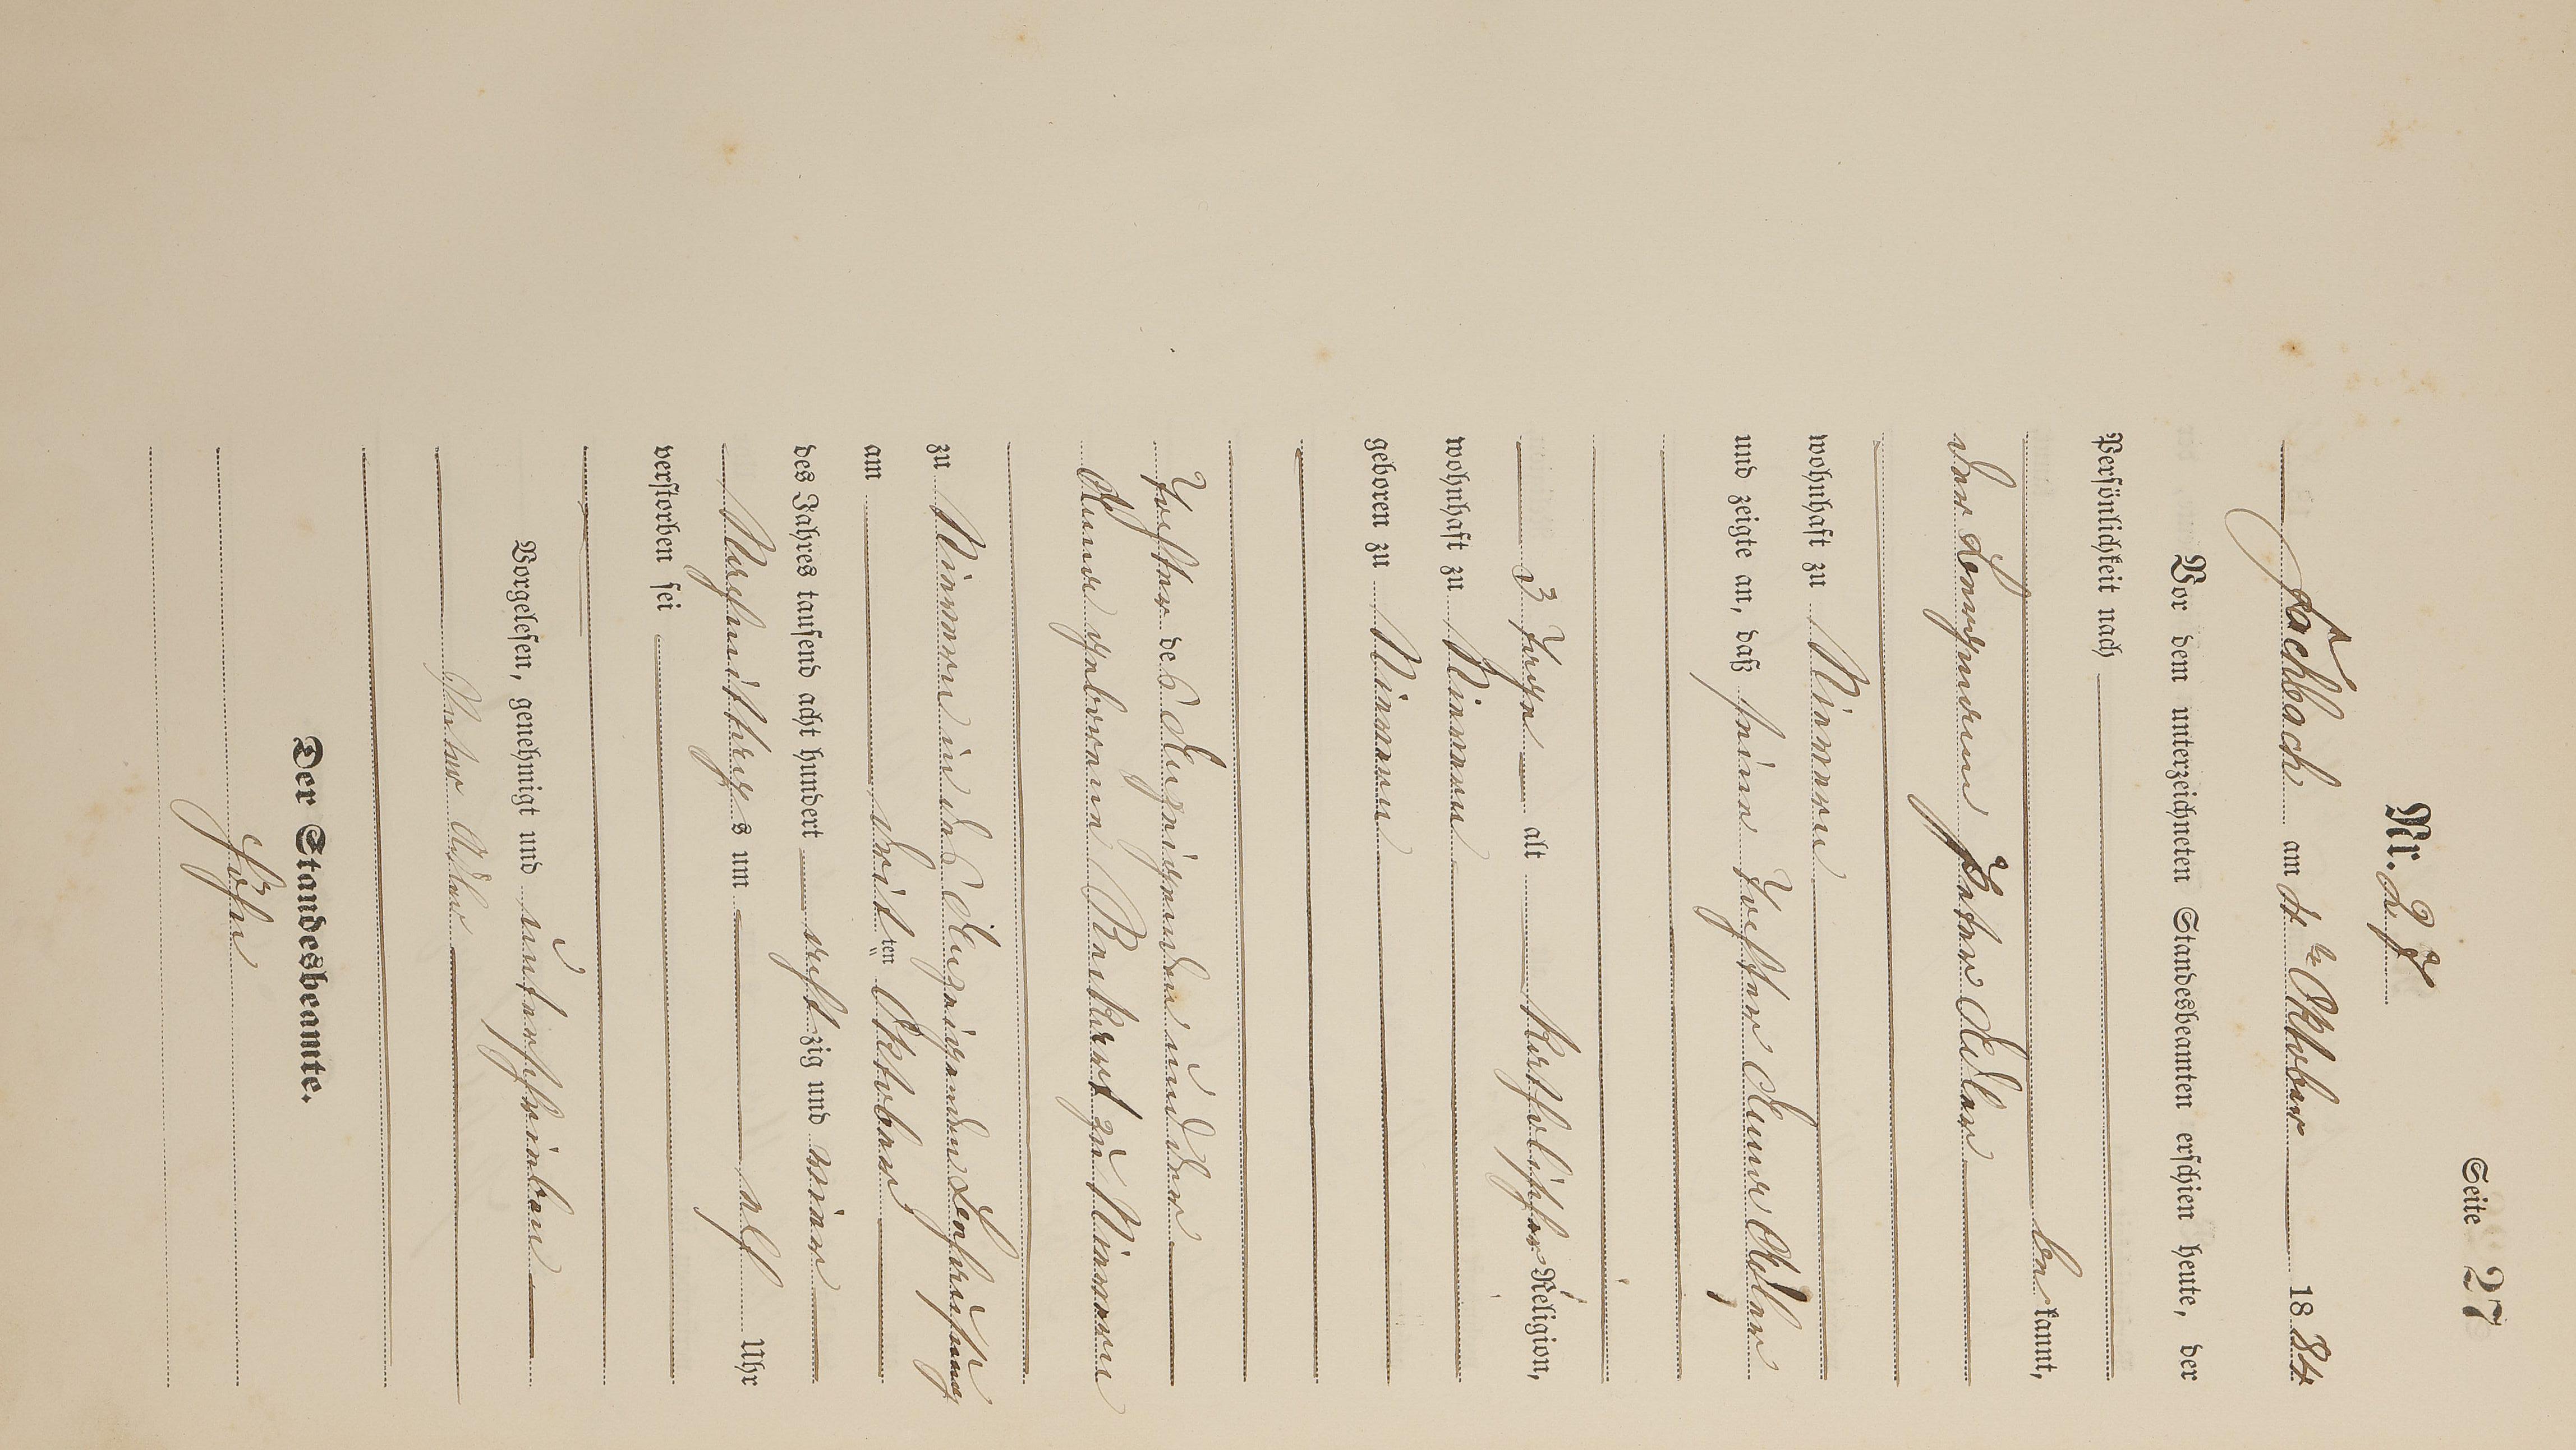 Seite 27
Nr. 27
Fachbach am 4ten Oktober 1884
Vor dem unterzeichneten Standesbeamten erschien heute, der
Persönlichkeit nach
bekannt,
der Bergmann Peter Adler
wohnhaft zu Nievern
und zeigte an, daß seine Tochter Anna Adler
3 Tage alt katholischer Religion,
wohnhaft zu Nievern
geboren zu Nievern
Tochter des Anzeigenden und der
Anna geborene zu Nievern
zu Nievern in des Anzeigenden Behausung
am dritten Oktober
des Jahres tausend acht hundert achtzig und vier
Nachmittags um elf Uhr
verstorben sei
Vorgelesen, genehmigt und unterschrieben
Peter Adler
Der Standesbeamte.